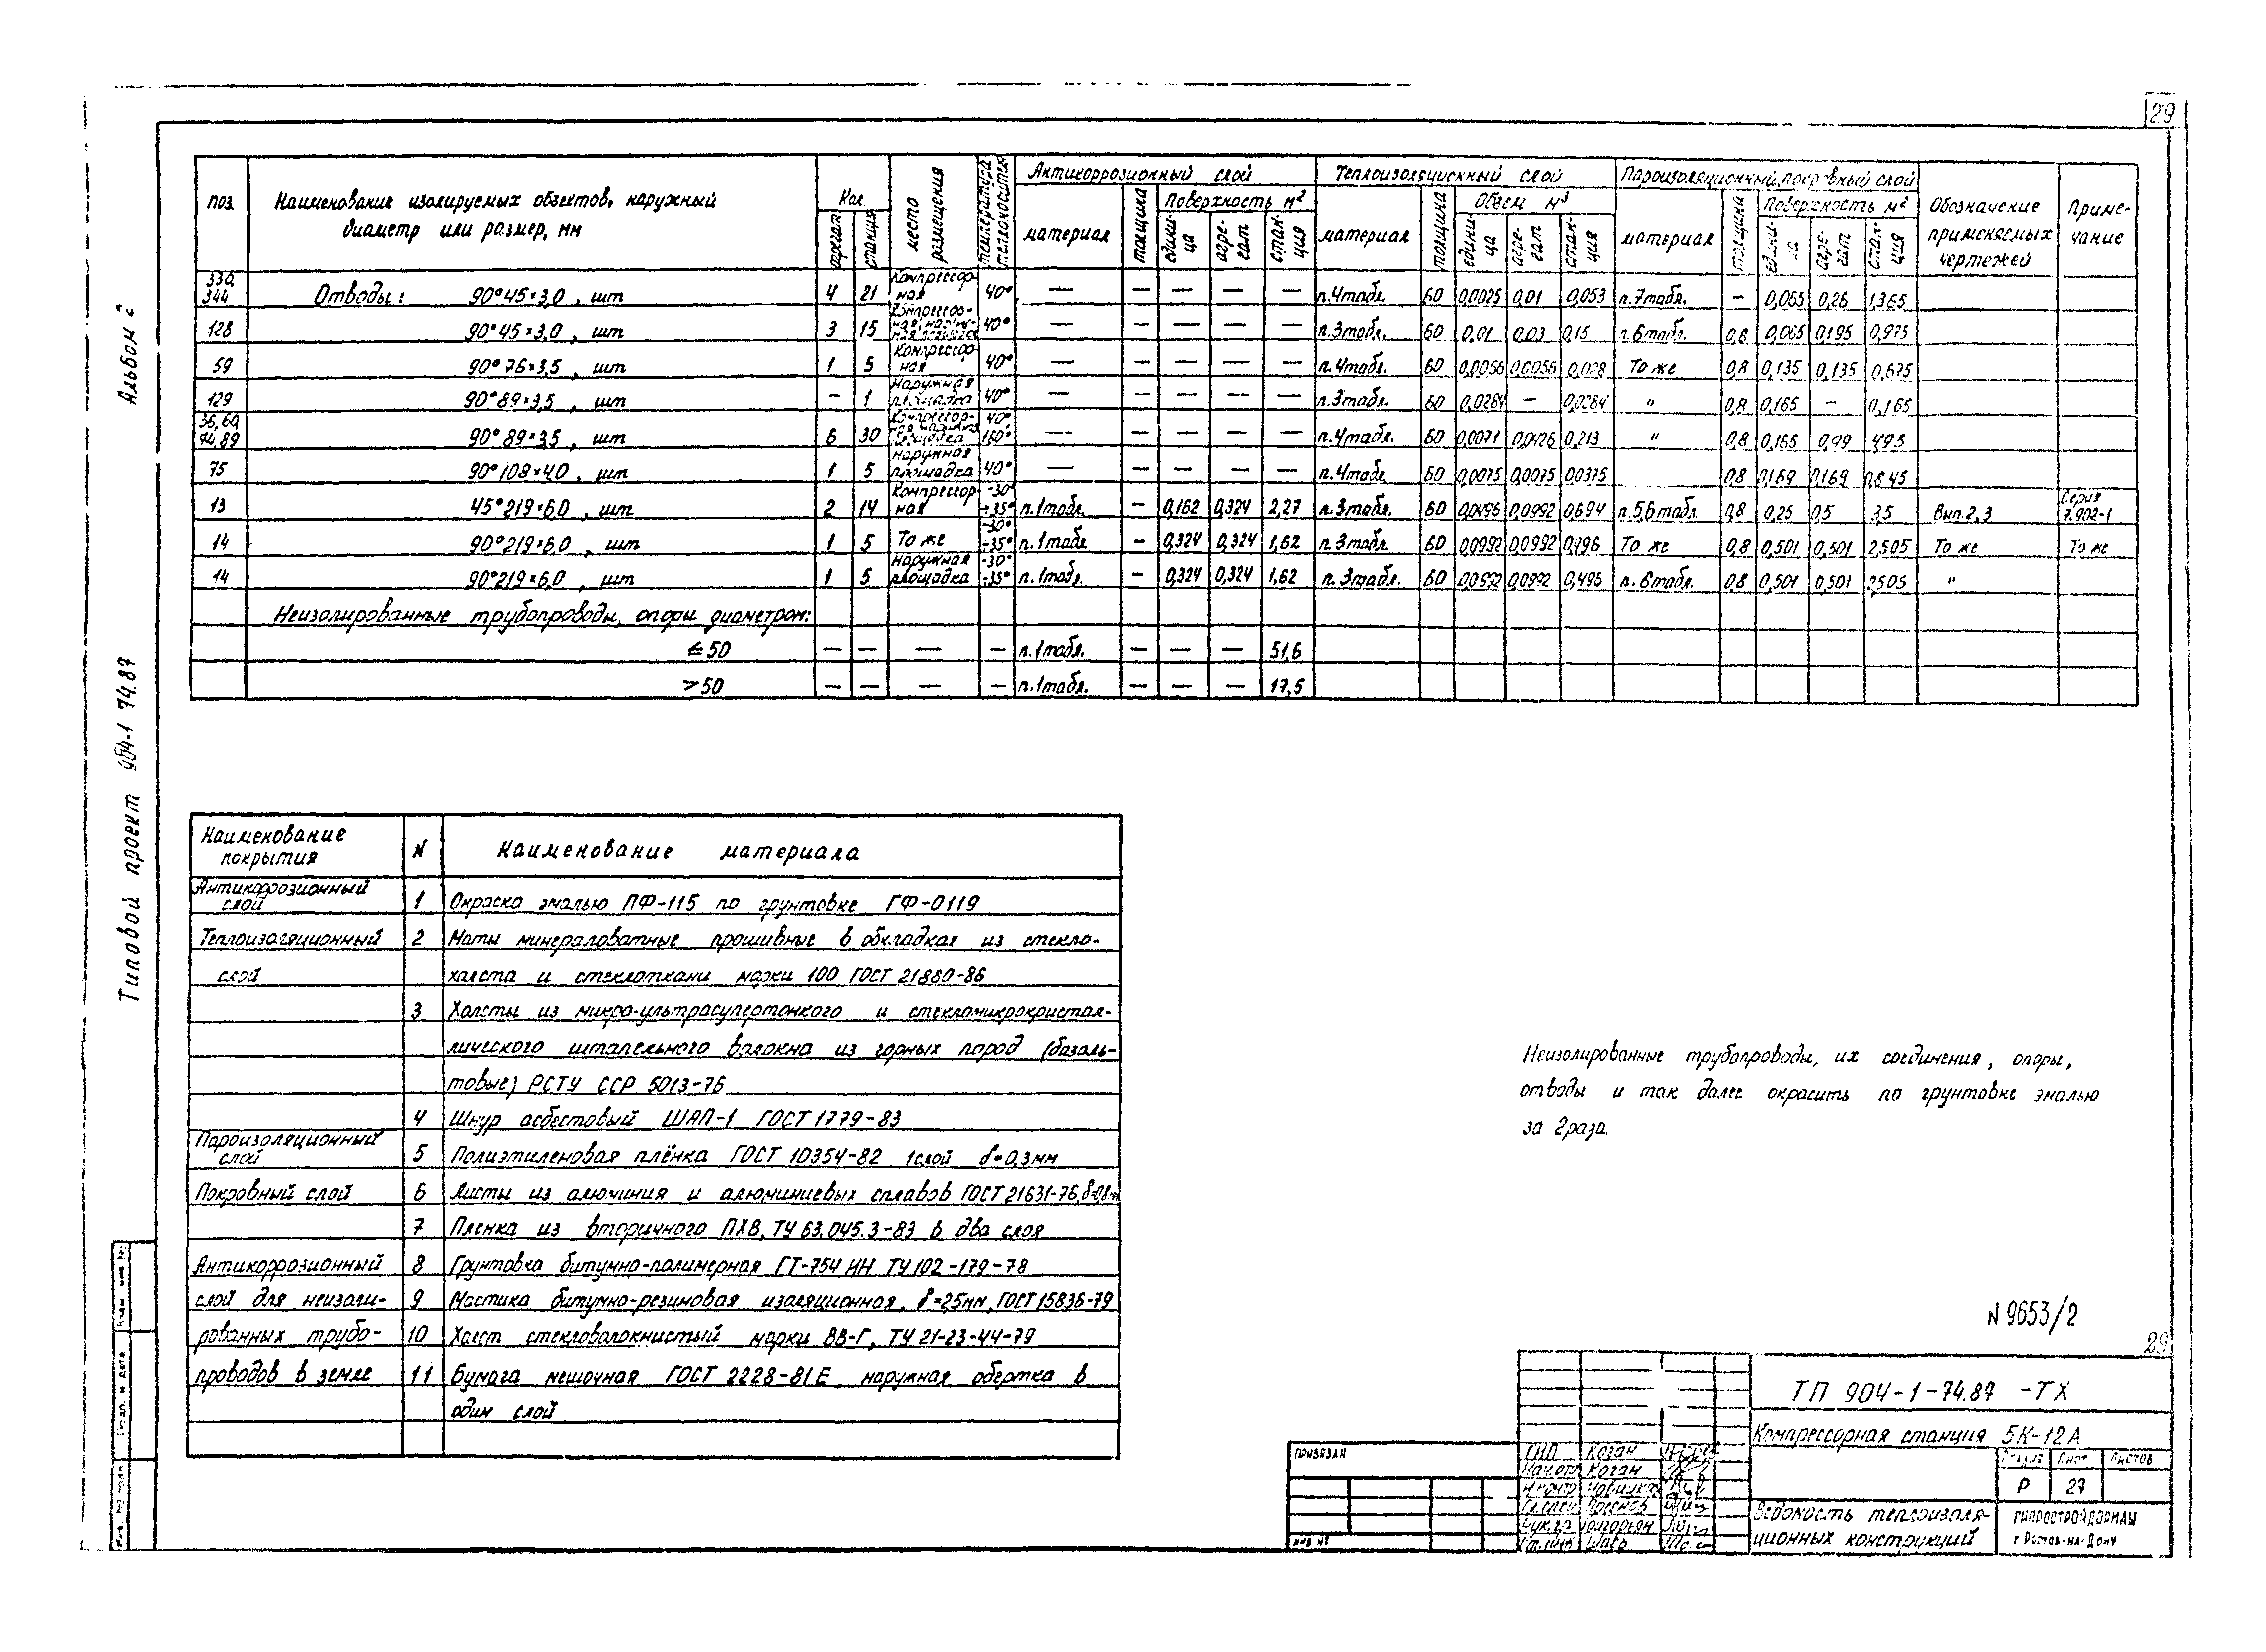 29
Альбом 2
Типовой проект 904-1 74.87
поз. Наименование изолируемых объектов, наружный диаметр или размер, мм Кол. агрегат станция место размещения температура теплоносителя Антикоррозионный слой материал толщина Поверхность м² едини-ца агре-гат стан-ция Теплоизоляционный слой материал толщина Объем м³ едини-ца агре-гат стан-ция Пароизоляционный, покровный слой материал толщина Поверхность м² едини-ца агре-гат стан-ция Обозначение применяемых чертежей Приме-чание
330, 344 Отводы: 90°45×3,0, шт 4 21 Компрессор-ная 40° — — — — — п.4табл. 60 0,0025 0,01 0,053 п.7табл. — 0,065 0,26 1,365
128 90°45×3,0, шт 3 15 40° — — — — — п.3табл. 60 0,01 0,03 0,15 п.6табл. 0,8 0,065 0,195 0,975
59 90°76×3,5, шт 1 5 Компрессор-ная 40° — — — — — п.4табл. 60 0,0056 0,0056 0,028 То же 0,8 0,135 0,135 0,675
129 90°89×3,5, шт — 1 Наружная площадка 40° — — — — — п.3табл. 60 0,0284 — 0,0284 " 0,8 0,165 — 0,165
36,60, 74,89 90°89×3,5, шт 6 30 40° 160° — — — — — п.4табл. 60 0,0071 0,0426 0,213 " 0,8 0,165 0,99 4,95
75 90°108×4,0, шт 1 5 Наружная площадка 40° — — — — — п.4табл 60 0,0075 0,0075 0,0375 0,8 0,169 0,169 0,845
13 45°219×6,0, шт 2 14 Компрессор-ная -30° ÷35° п.1табл. — 0,162 0,324 2,27 п.3табл. 60 0,0496 0,0992 0,694 п.5,6табл. 0,8 0,25 0,5 3,5 Вып.2,3 Серия 7.902-1
14 90°219×6,0, шт 1 5 То же -30° ÷35° п.1табл — 0,324 0,324 1,62 п.3табл. 60 0,0992 0,0992 0,496 То же 0,8 0,501 0,501 2,505 То же То же
14 90°219×6,0, шт 1 5 Наружная площадка -30° ÷35° п.1табл. — 0,324 0,324 1,62 п.3табл. 60 0,0992 0,0992 0,496 п.6табл. 0,8 0,501 0,501 2,505 "
Неизолированные трубопроводы, опоры диаметром:
≤50 — — — — п.1табл. — — — 51,6
>50 — — — — п.1табл. — — — 17,5
Наименование покрытия N Наименование материала
Антикоррозионный слой 1 Окраска эмалью ПФ-115 по грунтовке ГФ-0119
Теплоизоляционный 2 Маты минераловатные прошивные в обкладках из стекло-
слой холста и стеклоткани марки 100 ГОСТ 21880-86
3 Холсты из микро-ультрасупертонкого и стекломикрокристал-
лического штапельного волокна из горных пород (базаль-
товые) РСТУ ССР 5013-76
4 Шнур асбестовый ШАП-1 ГОСТ 1779-83
Пароизоляционный слой 5 Полиэтиленовая плёнка ГОСТ 10354-82 1слой δ=0,3мм
Покровный слой 6 Листы из алюминия и алюминиевых сплавов ГОСТ 21631-76, δ=0,8мм
7 Пленка из вторичного ПХВ, ТУ 63.045.3-83 в два слоя
Антикоррозионный 8 Грунтовка битумно-полимерная ГТ-754 ИН ТУ 102-179-78
слой для неизоли- 9 Мастика битумно-резиновая изоляционная, δ=2,5мм, ГОСТ 15836-79
рованных трубо- 10 Холст стекловолокнистый марки ВВ-Г, ТУ 21-23-44-79
проводов в земле 11 Бумага мешочная ГОСТ 2228-81Е наружная обертка в
один слой
Неизолированные трубопроводы, их соединения, опоры,
отводы и так далее окрасить по грунтовке эмалью
за 2раза.
N 9653/2
29
ТП 904-1-74.87 -ТХ
Компрессорная станция 5К-12А
Привязан
ИНВ №
ГИП Коган
Нач.отд Коган
Стадия Лист Листов
Р 27
Ведомость теплоизоля-
ционных конструкций
ГИПРОСТРОЙДОРМАШ
г Ростов-на-Дону